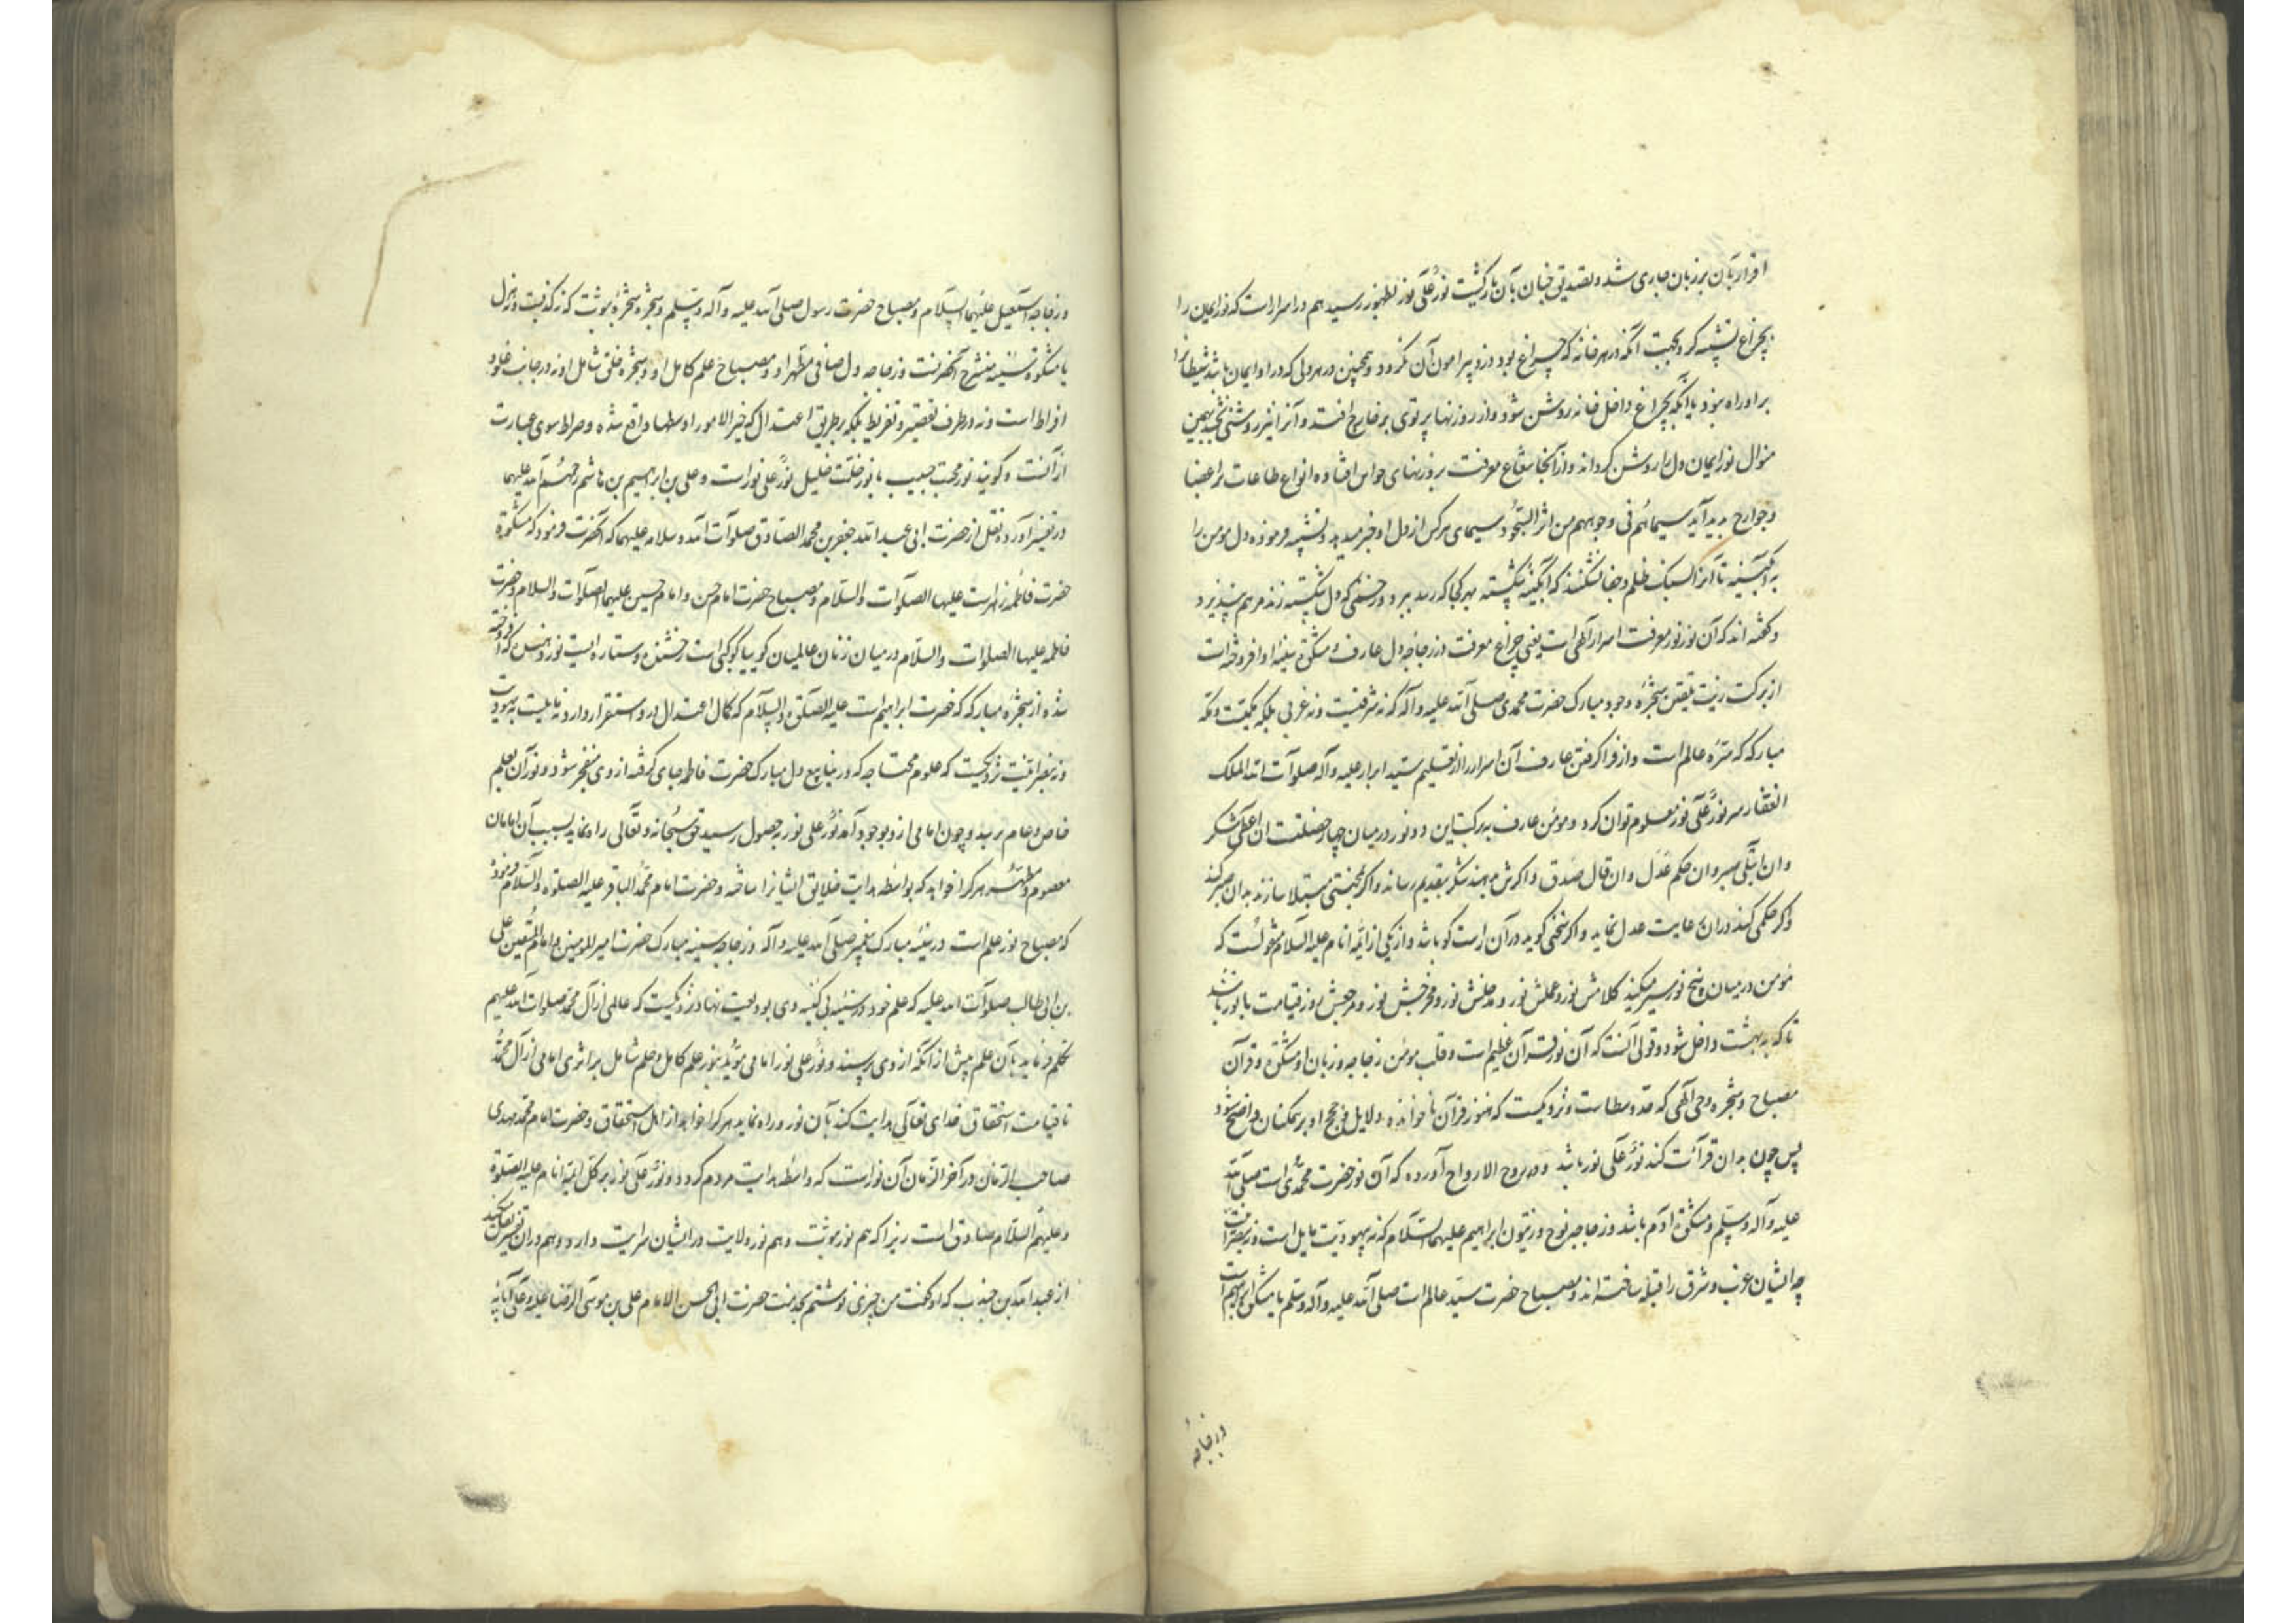 اقرار بآن بر زبان جاری شد و تصدیق جنان بآن یار گشت نور علی نور بظهور رسید هم در اسرار است که نور ایمان را
بچراغ تشبیه کرد بجهت آنکه در هر خانه که چراغ بود دزد پیرامون آن نکردد و همچنین در هر دلی که در او ایمان باشد شیطانرا
بر او راه نبود یا آنکه بچراغ داخل خانه روشن شود و از روزنها پرتوی بر خارج افتد و آنرا نیز روشنی بخشد بهمین
منوال نور ایمان دل را روشن کرداند و از آنجا شعاع معرفت بروزنهای حواس افتاده انواع طاعات بر اعضا
و جوارح پدید آید سیماهم فی وجوههم من اثر السجود سیمای هر کس از دل او خبر میدهد و تشبیه فرموده دل مومن را
به آبگینه تا آنرا بسنگ ظلم و جفا نشکنند که آبگینه شکسته بهر کجا که رسد ببرد و زخمی که دل شکسته زند مرهم نپذیرد
و گفته اند که آن نور نور معرفت اسرار الهی است یعنی چراغ معرفت در زجاجه دل عارف و مشکوة سینه او افروخته است
از برکت زیت تلقین شجره وجود مبارک حضرت محمدی صلی الله علیه و آله که نه شرقیست و نه غربی بلکه مکیست و مکه
مبارکه که سره عالم است و از فرا گرفتن عارف آن اسرار را از تعلیم سید ابرار علیه و آله صلوات الله الملک
الغفار سر نور علی نور معلوم توان کرد و مومن عارف به برکت این دو نور در میان چهار خصلتست ان اعطی شکر
و ان ابتلی صبر و ان حکم عدل و ان قال صدق و اگرش دهند شکر بتقدیم رساند و اگر بمحنتی مبتلا سازند بدان صبر کند
و اگر حکمی کند در ان رعایت عدل نماید و اگر سخنی گوید در آن راست گو باشد و از یکی از ائمه انام علیه السلام منقولست که
مومن در میان پنج نور سیر میکند کلامش نور و عملش نور و مدخلش نور و مخرجش نور و مرجعش روز قیامت با نور باشد
تا که به بهشت داخل شود و قولی آنست که آن نور قرآن عظیم است و قلب مومن زجاجه و زبان او مشکوة و قرآن
مصباح و شجره وحی الهی که و نزدیکست که هنوز قرآن ناخوانده دلایل و حجج او بر همکنان واضح شود
پس چون بدان قرائت کند نور علی نور باشد و در روح الارواح آورده که آن نور حضرت محمدی است صلی الله
علیه و آله وسلم و مشکوة آدم باشد و زجاجه نوح و زیتون ابراهیم علیهما السلام که نه بیهودیت مایل است و نه بنصرانیت
چه ایشان غرب و شرق را قبله ساخته اند و مصباح حضرت سید عالم است صلی الله علیه و آله وسلم یا مشکوة ابراهیم است
و زجاجه
و زجاجه اسمعیل علیهما السلام و مصباح حضرت رسول صلی الله علیه و آله وسلم و شجره شجره نبوت که نه کذبت و نه هزل
یا مشکوة سینه منشرح آنحضرتست و زجاجه دل صافی مطهر او و مصباح علم کامل او و شجره خلق شامل او نه در جانب غلو و
افراط است و نه در طرف تقصیر و تفریط بلکه بر طریق اعتدال که خیر الامور اوسطها واقع شده و صراط سوی عبارت
از آنست و گویند نور محبت حبیب با نور خلت خلیل نور علی نور است و علی بن ابراهیم بن هاشم رحمهم الله علیهما
در تفسیر آورده نقل از حضرت ابی عبد الله جعفر بن محمد الصادق صلوات الله و سلامه علیهما که آنحضرت فرمود که مشکوة
حضرت فاطمه زهراست علیها الصلوات والسلام و مصباح حضرت امام حسن و امام حسین علیهما الصلوات والسلام و حضرت
فاطمه علیها الصلوات والسلام در میان زنان عالمیان گوییا کوکبی است رخشنده و ستاره ایست نور دهنده که افروخته
شده از شجره مبارکه که حضرت ابراهیم است علیه الصلوة والسلام که کمال اعتدال در و استقرار دارد نه مایلیت به یهودیت
و نه بنصرانیت نزدیکست که علوم محتاجه که در ینابیع دل مبارک حضرت فاطمه جای گرفته از وی منفجر شود و نور آن بعلم
خاص و عام برسد و چون امامی از و بوجود آمد نور علی نور به حصول رسید حق سبحانه و تعالی راه نماید بسبب آن امامان
معصوم و مطهر هر کرا خواهد که بواسطه هدایت خلایق ایشانرا ساخته و حضرت امام محمد الباقر علیه الصلوة والسلام فرمود
که مصباح نور علم است در سینه مبارک پیغمبر صلی الله علیه و آله و زجاجه سینه مبارک حضرت امیر المومنین و امام المتقین علی
بن ابی طالب صلوات الله علیه که علم خود در سینه بی کینه وی بودیعت نهاد نزدیکست که عالمی از آل محمد صلوات الله علیهم
تکلم فرماید بآن علم پیش از آنکه از وی پرسند و نور علی نور امامی موید بنور علم کامل و حلم شامل بر اثر امامی از آل محمد
تا قیامت استحقاق خدای تعالی هدایت کند بآن نور و راه نماید هر کرا خواهد از اهل استحقاق و حضرت امام محمد مهدی
صاحب الزمان در آخر الزمان آن نور است که واسطه هدایت مردم گردد و نور علی نور بر کل ائمه انام علیه الصلوة
و علیهم السلام صادق است زیرا که هم نور نبوت و هم نور ولایت در ایشان سرایت دارد و هم در ان تفسیر نقل میکند
از عبد الله بن جندب که او گفت من چیزی نوشتم بخدمت حضرت ابی الحسن الامام علی بن موسی الرضا علیه و علی آبائه